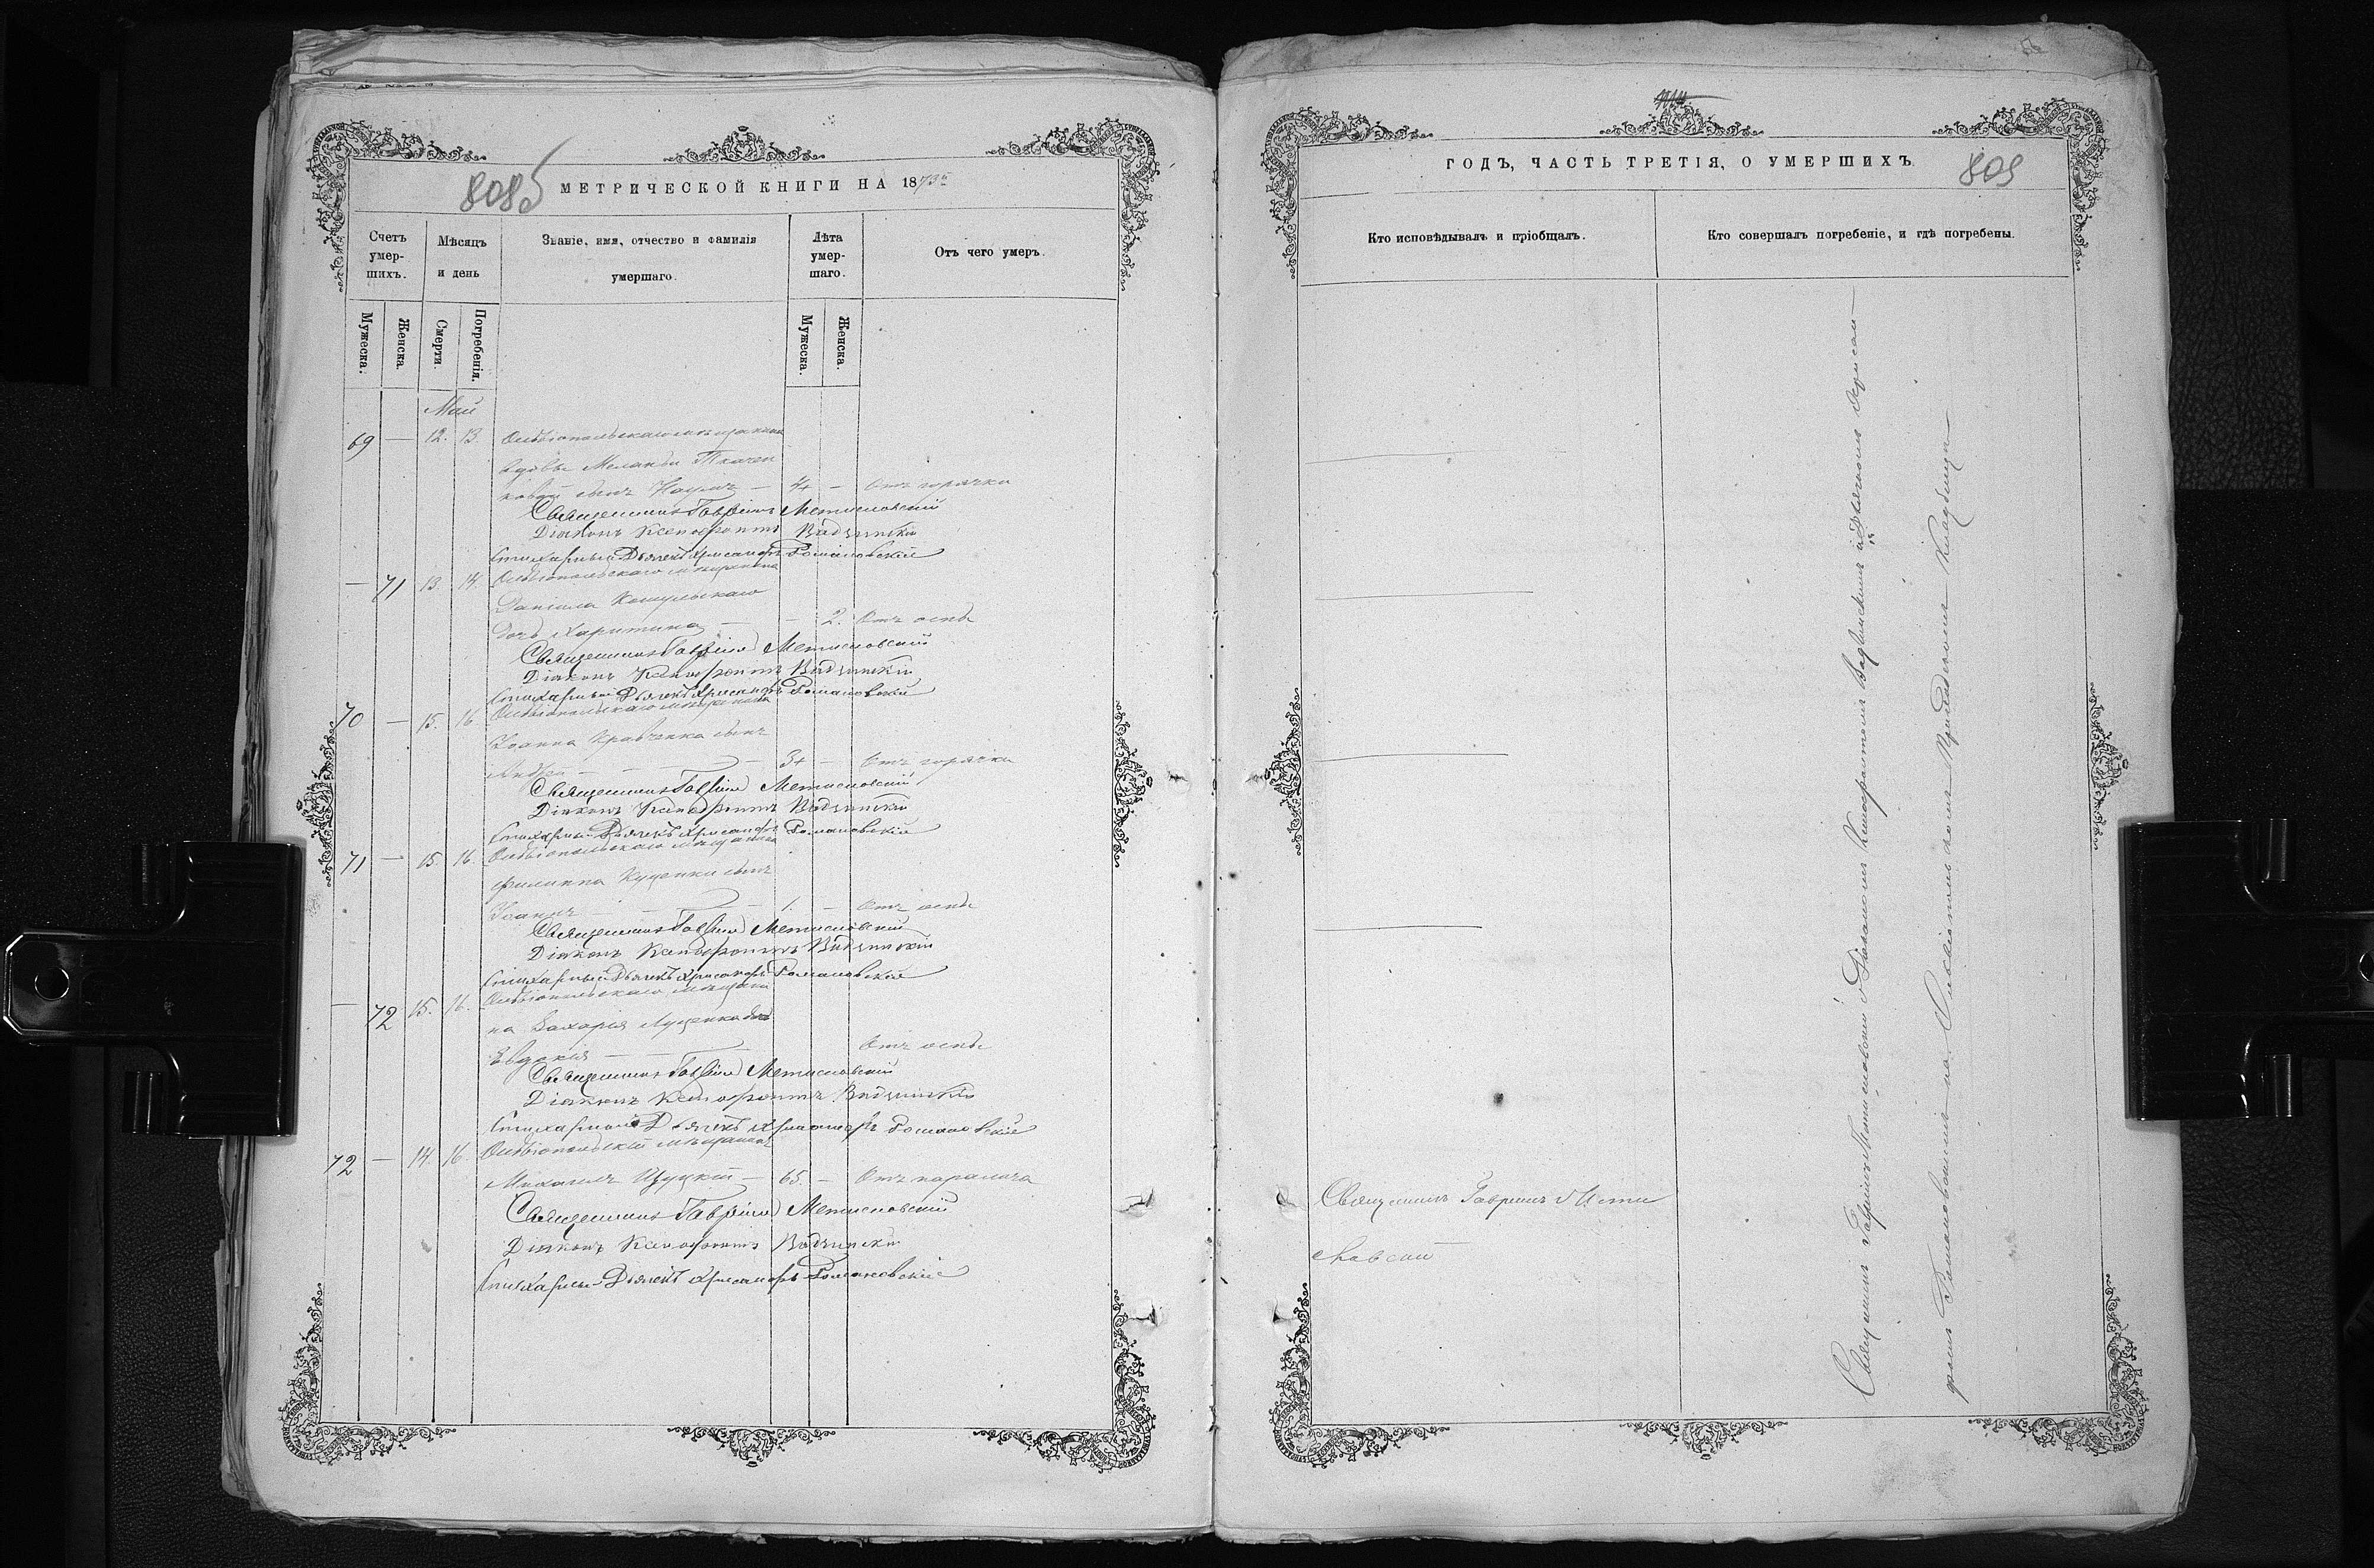 808б
МЕТРИЧЕСКОЙ КНИГИ НА 1873й
Счетъ умер-шихъ.
Мѣсяцъ и день
Званіе, имя, отчество и фамилія умершаго.
Лѣта умер-шаго.
Отъ чего умеръ.
Мужеска.
Женска.
Смерти.
Погребенія.
Мужеска.
Женска.
Май
69 — 12. 13. Ольвіопольскаго мѣщанина
вдовы Меланіи Ткачен
ковой сынъ Наумъ — — Отъ горячки
Священникъ Гавріилъ Метисловскій
Діаконъ Ксенофонтъ Вадзинскій
Стихарный Дьячекъ Хрисанфъ Романовскій
— 71 13. 14. Ольвіопольскаго мѣщанина
Даніила Кошульскаго
дочь Харитина — — 2. Отъ оспы
Священникъ Гавріилъ Метисловскій
Діаконъ Ксенофонтъ Вадзинскій
Стихарный Дьячекъ Хрисанфъ Романовскій
70 — 15. 16. Ольвіопольскаго мѣщанина
Іоанна Кравченка сынъ
— — Отъ горячки
Священникъ Гавріилъ Метисловскій
Діаконъ Ксенофонтъ Вадзинскій
Стихарный Дьячекъ Хрисанфъ Романовскій
71 — 15. 16. Ольвіопольскаго мѣщанина
Филиппа Куценки сынъ
Іоаннъ — 1. — Отъ оспы
Священникъ Гавріилъ Метисловскій
Діаконъ Ксенофонтъ Вадзинскій
Стихарный Дьячекъ Хрисанфъ Романовскій
— 72 15. 16. Ольвіопольскаго мѣщани
на Захарія Луценка дочь
Евдокія — Отъ оспы
Священникъ Гавріилъ Метисловскій
Діаконъ Ксенофонтъ Вадзинскій
Стихарный Дьячекъ Хрисанфъ Романовскій
72 — 14. 16. Ольвіопольскій мѣщанинъ
Михаилъ — 65. — Отъ паралича
Священникъ Гавріилъ Метисловскій
Діаконъ Ксенофонтъ Вадзинскій
Стихарный Дьячекъ Хрисанфъ Романовскій
ГОДЪ, ЧАСТЬ ТРЕТІЯ, О УМЕРШИХЪ.
809
Кто исповѣдывалъ и пріобщалъ.
Кто совершалъ погребеніе, и гдѣ погребены.
Священникъ Гавріилъ Мети
словскій
Священникъ Гавріилъ Метисловскій съ Діакономъ Ксенофонтомъ Вадзинскимъ и Дьячкомъ Хрисан—
фомъ Романовскимъ на Ольвіопольскомъ Приходскомъ Кладбищѣ—